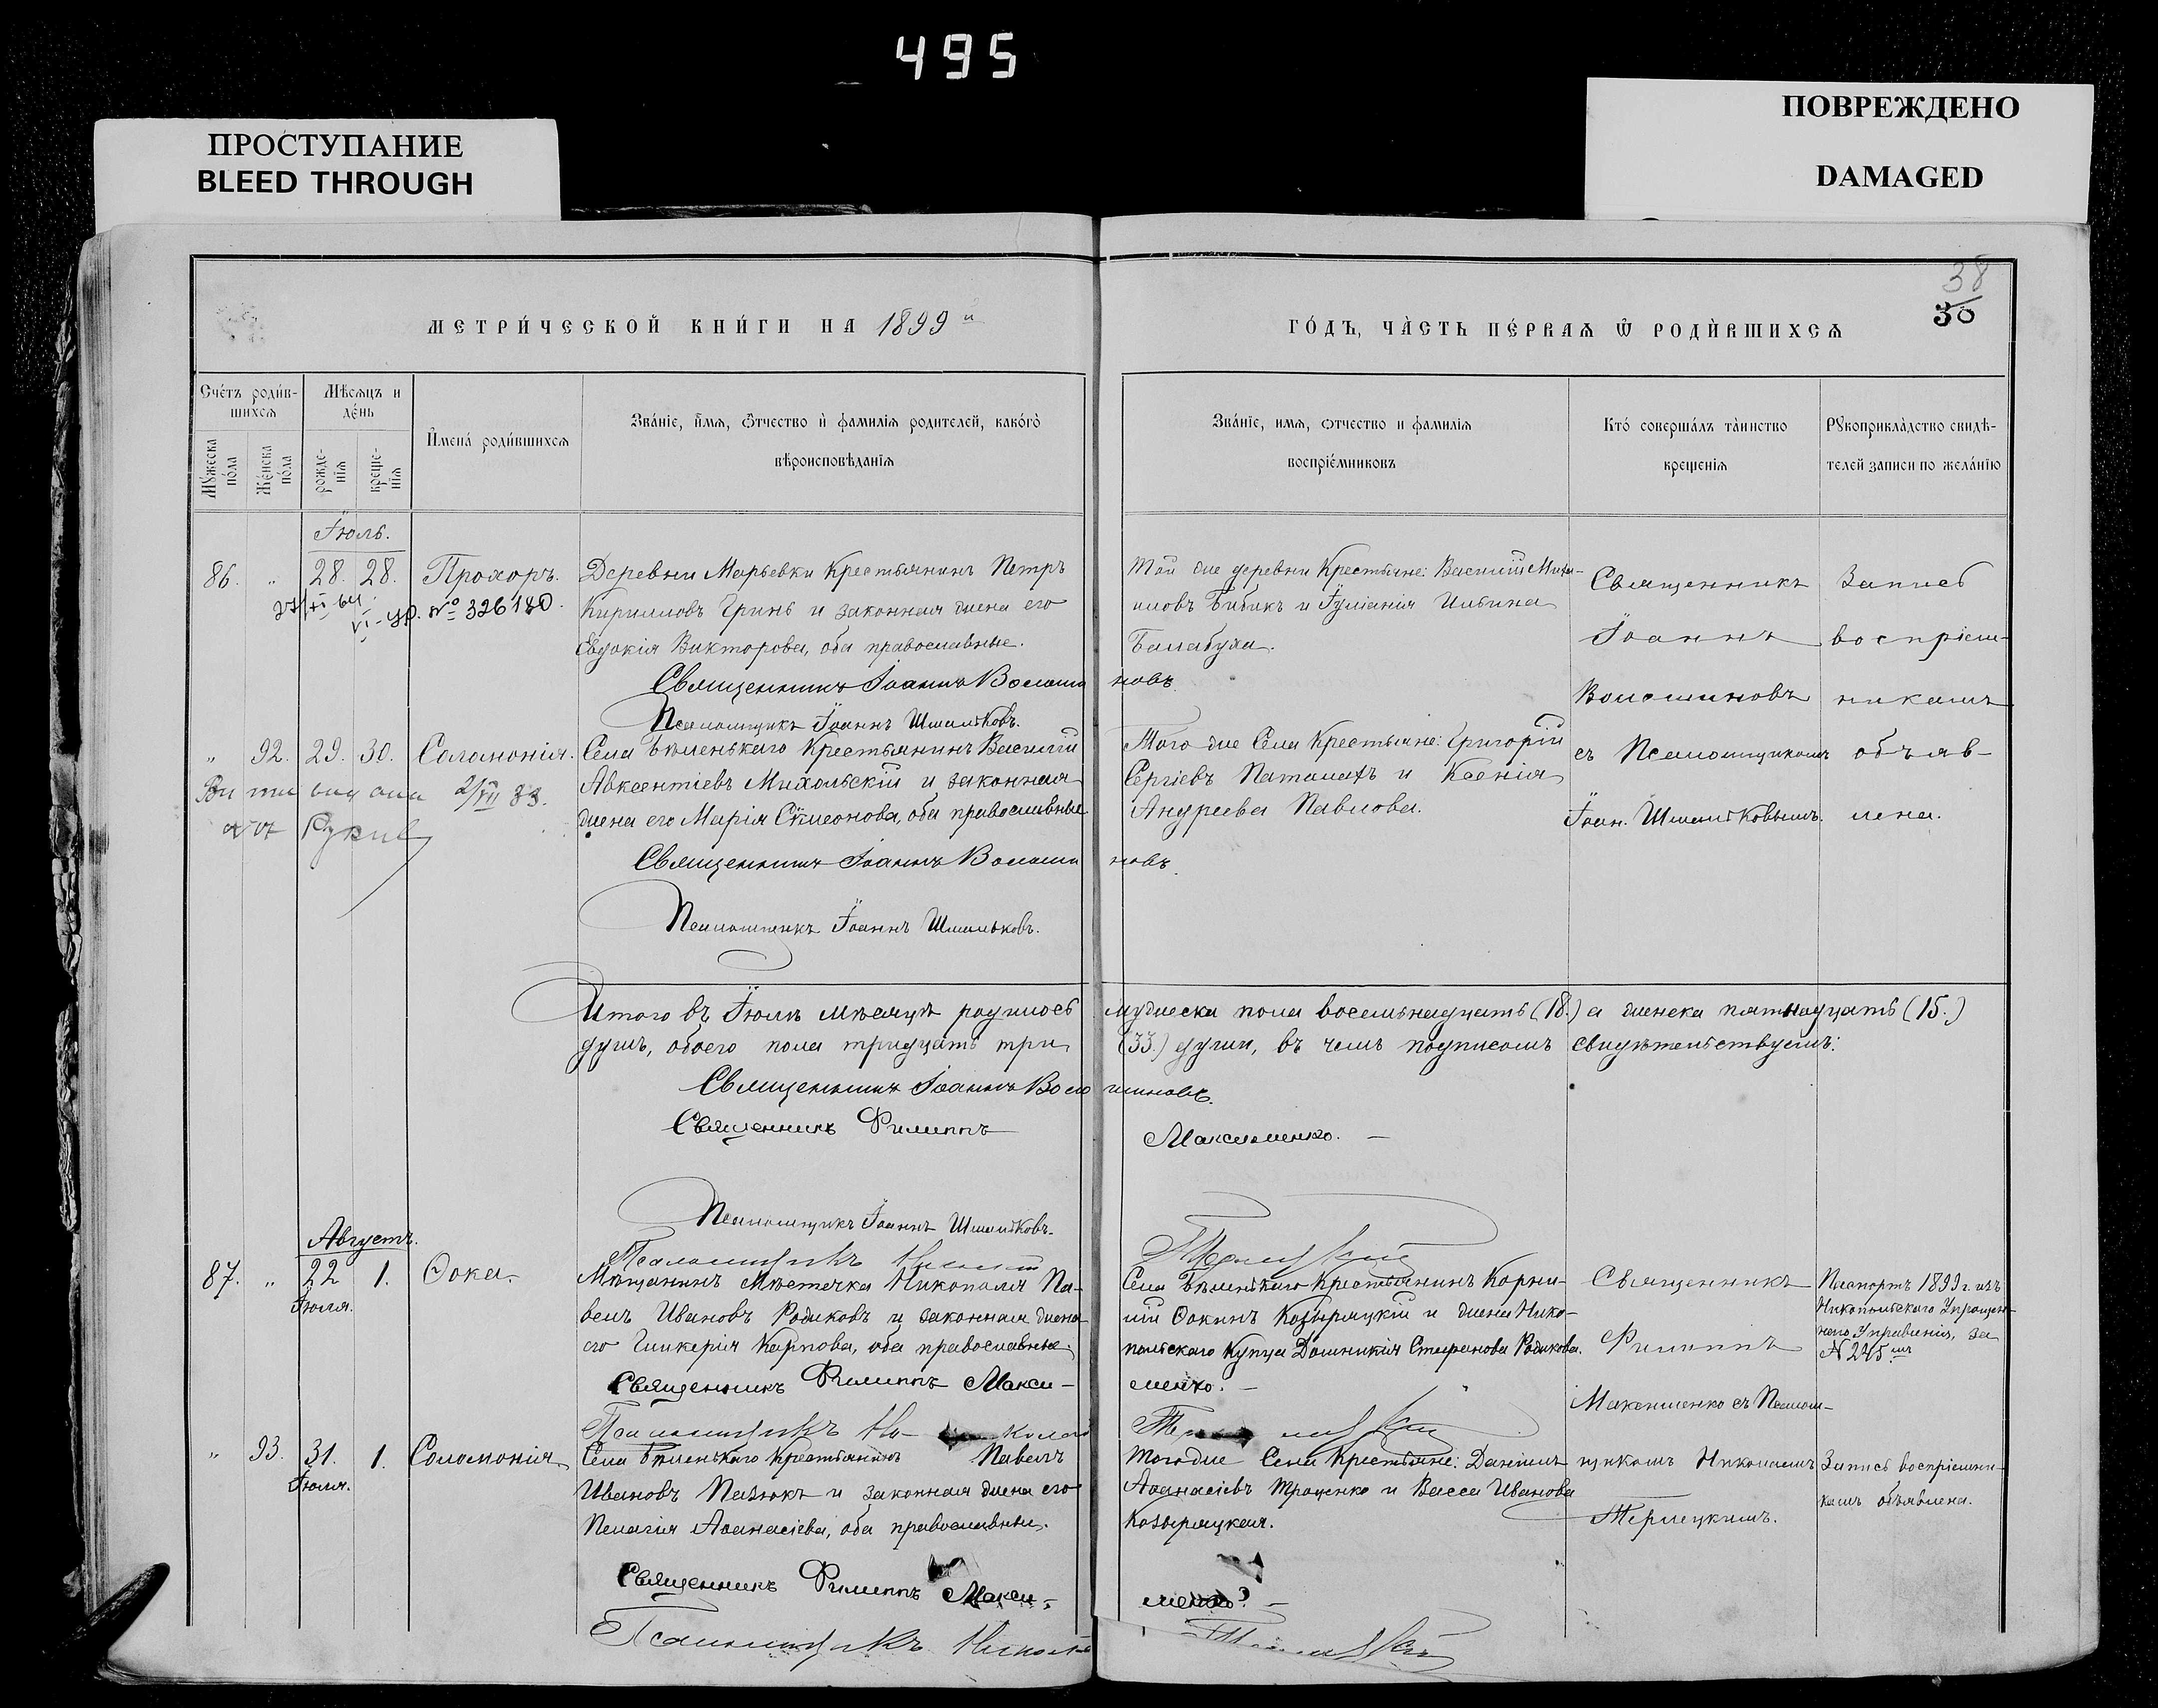 495
ПРОСТУПАНИЕ
BLEED THROUGH
ПОВРЕЖДЕНО
DAMAGED
38
30
МЕТРИ́ЧЕСКОЙ КНИ́ГИ НА 1899 й
ГО́ДЪ, ЧА̀СТЬ ПЕ́РВАѦ Ѿ РОДЍВШИХСѦ
Сче́тъ роди́в-
шихсѧ
Мꙋ́жеска по́ла
Же́нска по́ла
Мѣ́сѧцъ и
де́нь
рожде-
нїѧ
креще-
нїѧ
И҆мена́ роди́вшихсѧ
Зва́нїе, и҆́мѧ, ѻ҆́тчество и҆ фамилїѧ родителей, како́гѡ
вѣроисповѣ́данїѧ
Зва́нїе, имѧ, ѻтчество и фамилїѧ
воспрїе́мниковъ
Кто́ соверша́лъ та́инство
креще́нїѧ
Рꙋкоприкла̀дство свидѣ́-
телей записи по жела́нїю
Іюль.
86. " 28. 28. Прохоръ.
27/XI-64
VI-УР. № 326180.
Деревни Марьевки Крестьянинъ Петръ
Кирилловъ Гринь и законная жена его
Евдокія Викторова, оба православные.
Священникъ Іоаннъ Волоши
новъ.
Псаломщикъ Іоаннъ Шмитьковъ.
Той же деревни Крестьяне: Василій Миха-
иловъ Бибикъ и Іуліанія Ильина
Балабуха.
Священникъ
Іоаннъ
Волошиновъ
съ Псаломщикомъ
Іоан. Шмитьковымъ.
Запись
воспріем-
никамъ
объяв-
лена.
" 92. 29. 30. Саломонія.
2/VII 33.
Села Бѣленькаго Крестьянинъ Василій
Авксентіевъ Михальскій и законная
жена его Марія Симеонова, оба православные
Священникъ Іоаннъ Волоши
новъ.
Псаломщикъ Іоаннъ Шмитьковъ.
Того же Села Крестьяне: Григорій
Сергіевъ Паталахъ и Ксенія
Андреева Павлова.
Итого въ Іюлѣ мѣсяцѣ родилось мужеска пола восемьнадцать (18.) а женска пятнадцать (15.)
душъ, обоего пола тридцать три (33.) души, въ чемъ подписомъ свидѣтельствуемъ:
Священникъ Іоаннъ Воло шиновъ.
Священникъ Филиппъ Максименко. —
Псаломщикъ Іоаннъ Шмитьковъ.
Псаломщикъ Николай Терлецкій
Августъ.
87. " 22 1. Ѳока.
Іюля.
Мѣщанинъ Мѣстечка Никополя Па-
велъ Ивановъ Родиковъ и законная жена
его Гликерія Карпова, оба православные.
Священникъ Филиппъ Макси-
менко. —
Псаломщикъ Николай
Терлецкій
Села Бѣленькаго Крестьянинъ Корни-
лій Ѳокинъ Козырацкій и жена Нико-
польскаго Купца Домникія Стефанова Родикова.
Священникъ
Филиппъ
Максименко съ Псалом-
щикомъ Николаемъ
Терлецкимъ.
Паспортъ 1899 г. изъ
Никопольскаго Упрощен-
наго Управленія, за
№ 245.мъ
" 93. 31. 1. Соломонія
Іюля.
Села Бѣленькаго Крестьянинъ Павелъ
Ивановъ Пазюкъ и законная жена его
Пелагія Аѳанасіева, оба православные.
Священникъ Филиппъ Макси-
менко. —
Псаломщикъ Николай
Терлецкій
Того же Села Крестьяне: Даніилъ
Аѳанасіевъ Троценко и Васса Иванова
Козырацкая.
Запись воспріемни-
камъ объявлена.